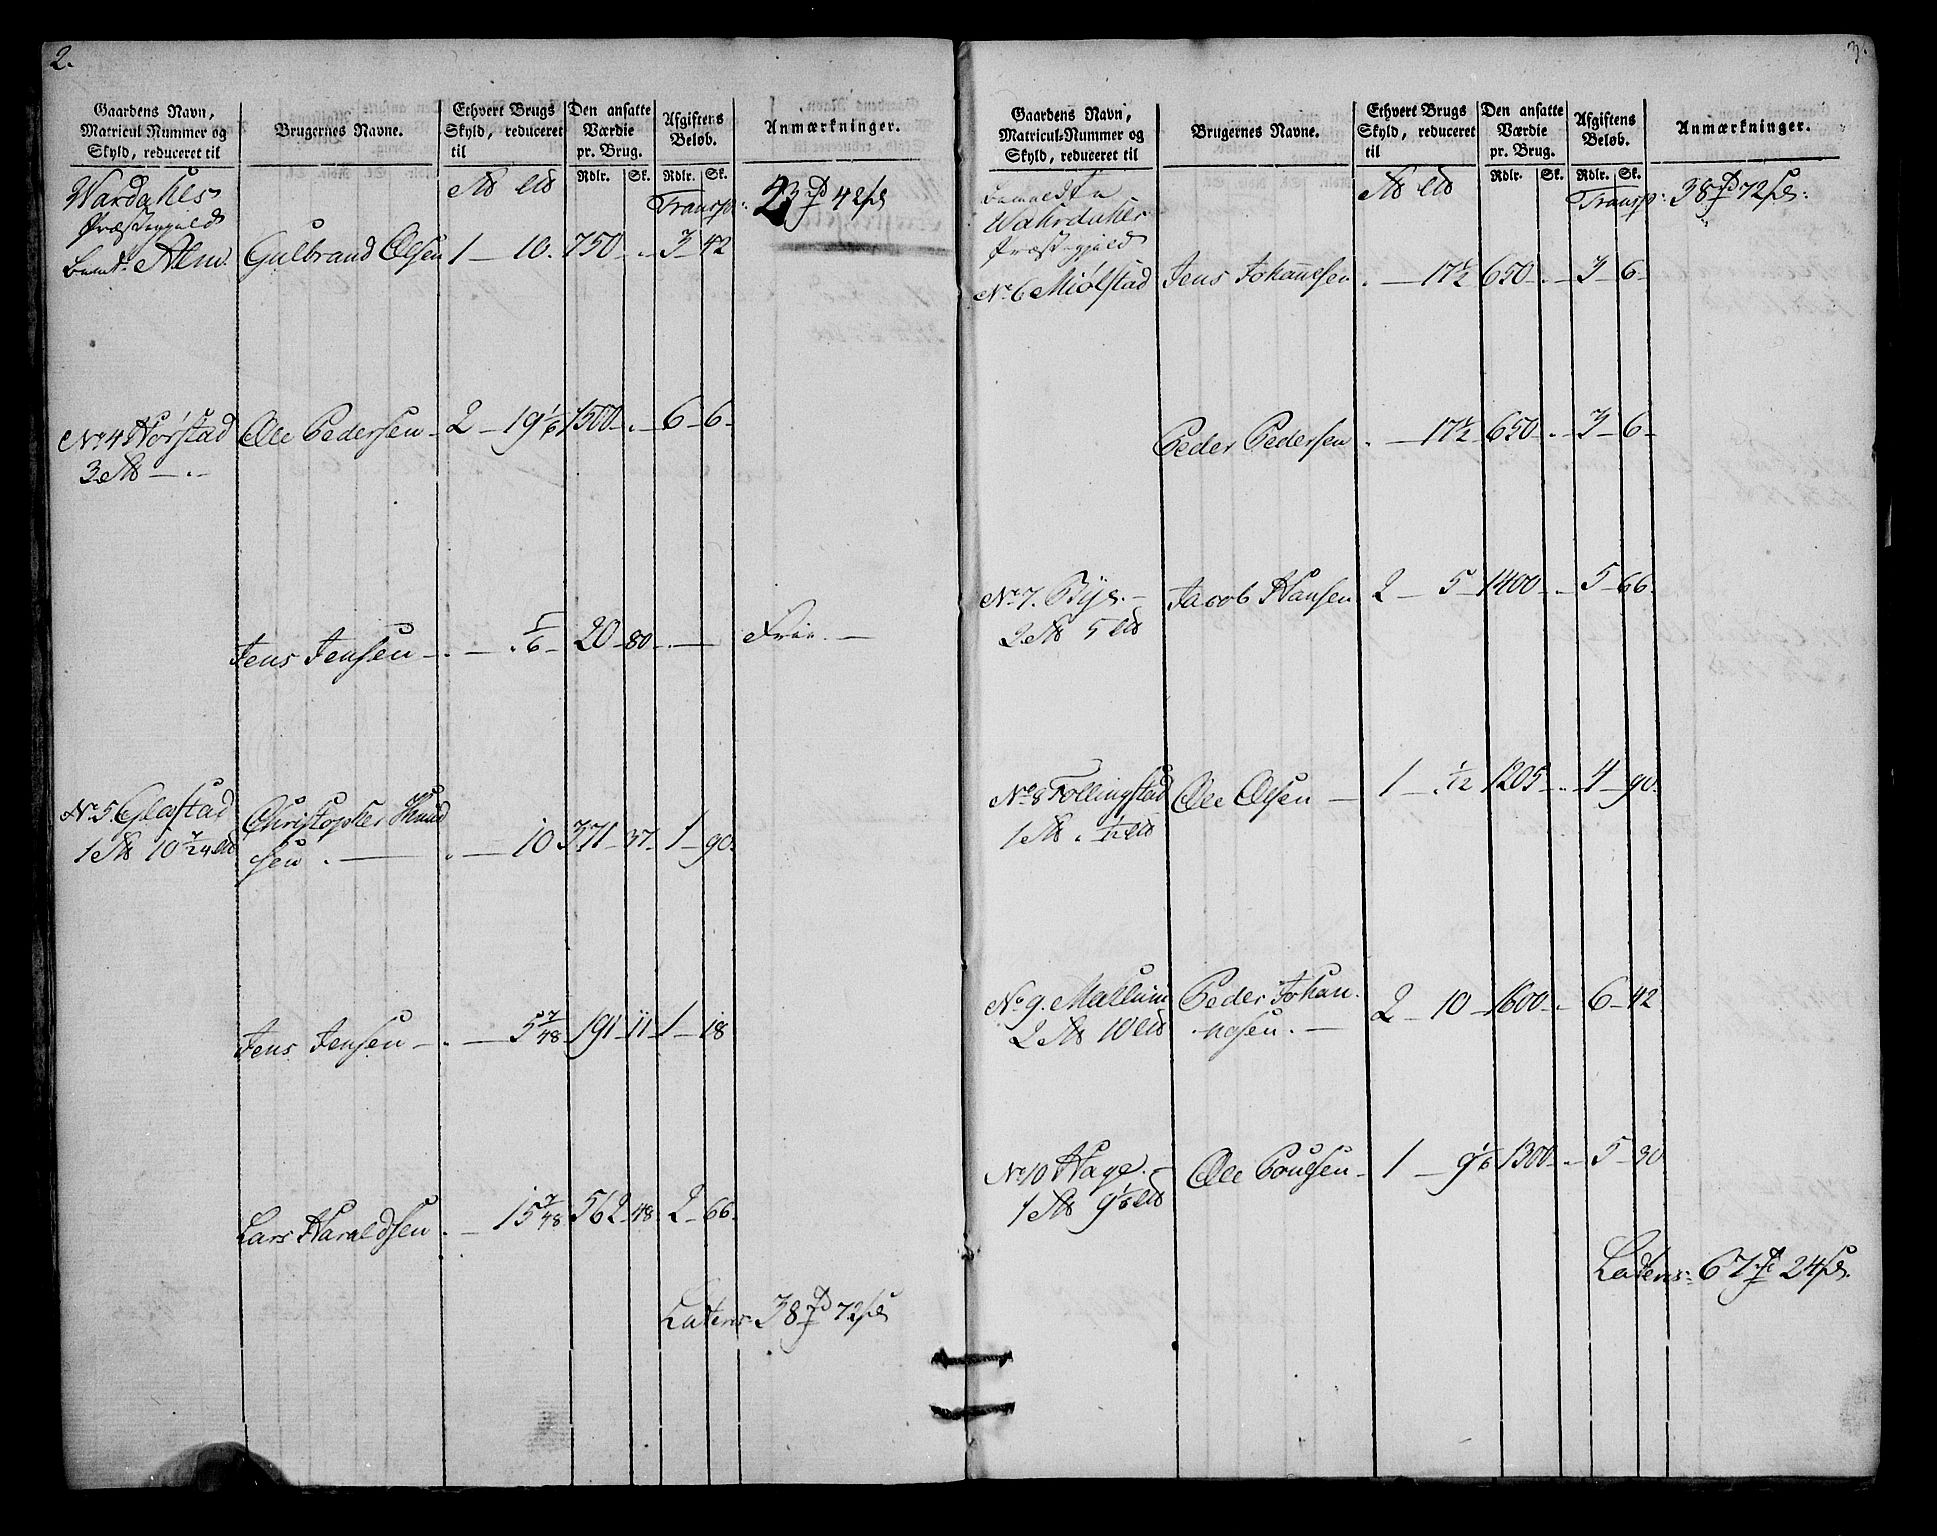 2.
Gaardens Navn, Matricul-Nummer og Skyld, reduceret til | Brugernes Navne. | Ethvert Brugs Skyld, reduceret til | Den ansatte Værdie pr. Brug. | Afgiftens Beløb. | Anmærkninger.
Rdlr. Sk. Rdlr. Sk.
Wardahls Transp: 23 42
Præstegield
Alm. Gulbrand Olsen 1 – 10. 750 – . – 3 – 42
No 4 Hørstad Ole Pedersen – 2 – 19 1/6 1500 – . – 6 – 6 –
3
Jens Jensen – . – . 5/6 – 20 – 80 – . – Frie. –
No 5 Gløstad Christopher Knud
1 10 7/24 sen . – . – 10 371 – 37. 1 – 90.
Jens Jensen – . – 5 7/48 191 – 11 – 1 – 18
Lars Haraldsen . – 15 7/48 562 – 48. 2 – 66.
Lateris: 38 72
3.
Gaardens Navn, Matricul-Nummer og Skyld, reduceret til | Brugernes Navne. | Ethvert Brugs Skyld, reduceret til | Den ansatte Værdie pr. Brug. | Afgiftens Beløb. | Anmærkninger.
Rdlr. Sk. Rdlr. Sk.
Transp: 38 72
Wahrdahls
Præstegjeld
No 6 Miølstad Jens Johannesen . – 17 1/2 650 – . – 3 – 6 –
Peder Pedersen . – 17 1/2 650 – . – 3 – 6 –
No 7. Bye. – Jacob Hansen 2 – 5 – 1400 – . – 5 – 66.
2 5
No 8 Follingstad Ole Olsen – 1 – . 1/12 1205 – . – 4 – 90.
1 . 1/12
No 9. Mællum Peder Johan- 2 – 10 – 1600 – . – 6 – 42
2 10 nesen. –
No 10 Hage. – Ole Poulsen – 1 – 9 1/6 1300 – . – 5 – 30
1 9 1/6
Lateris: 67 24